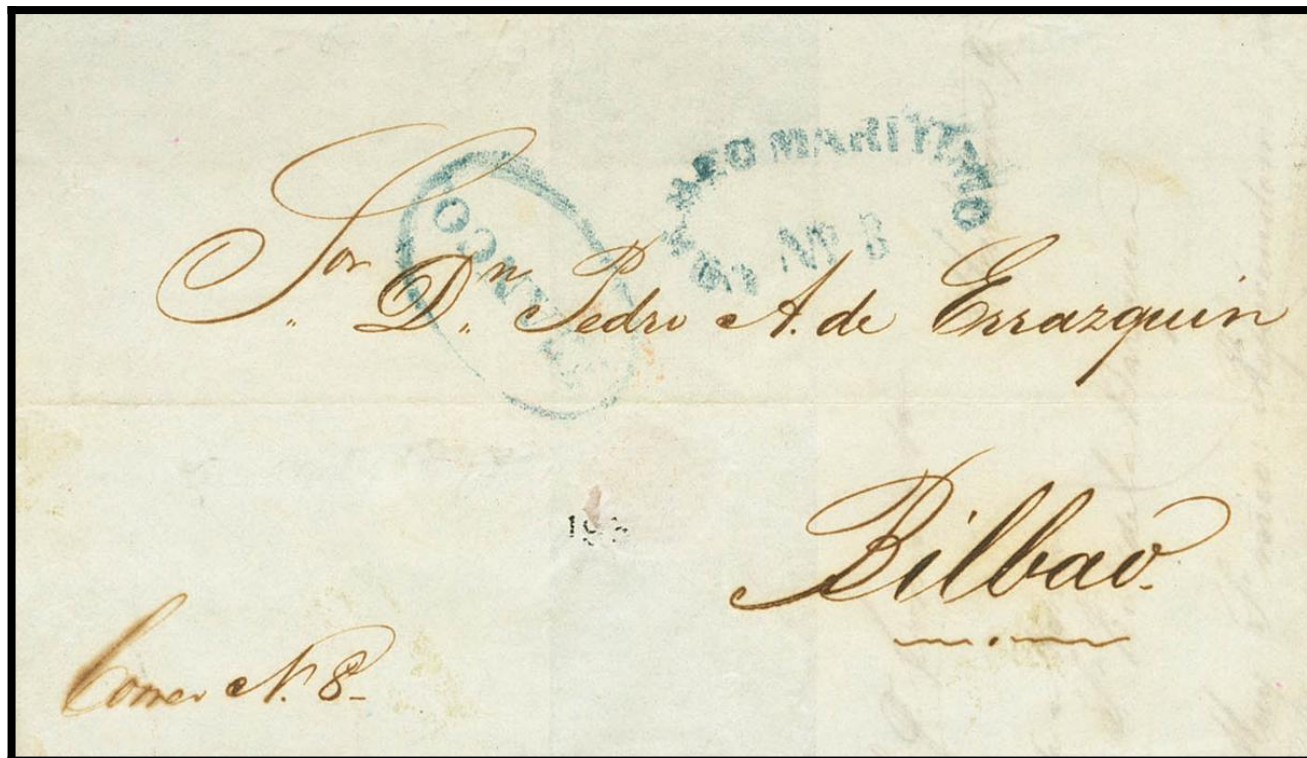 CORREO MARITIMO
Nº 8
FRANCO
Sor. Dn. Pedro A. de Errazquin
Bilbao.
Correo N. 8